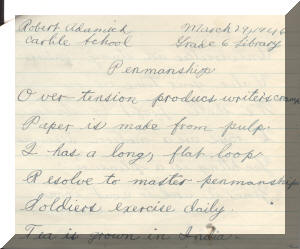 Robert Adamich March 29, 1946
Carlile School Grade 6 Library
Penmanship
Over tension producs writers cramp
Paper is make from pulp.
I has a long, flat loop
Resolve to master penmanship
Soldiers exercise daily.
Tea is grown in India.